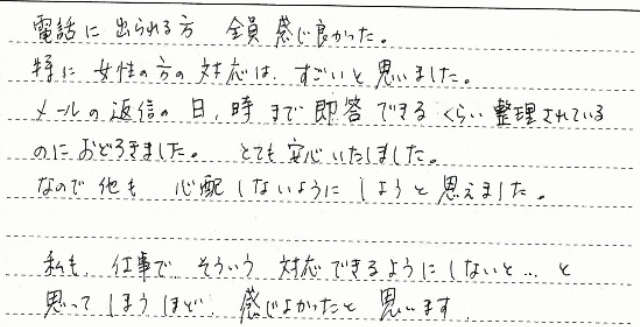 電話に出られる方 全員感じ良かった。
特に女性の方の対応は、すごいと思いました。
メールの返信の日、時まで即答できるくらい整理されている
のにおどろきました。 とても安心いたしました。
なので他も 心配しないようにしようと思えました。
私も、仕事で、そういう対応できるようにしないと…と
思ってしまうほど、感じよかったと思います